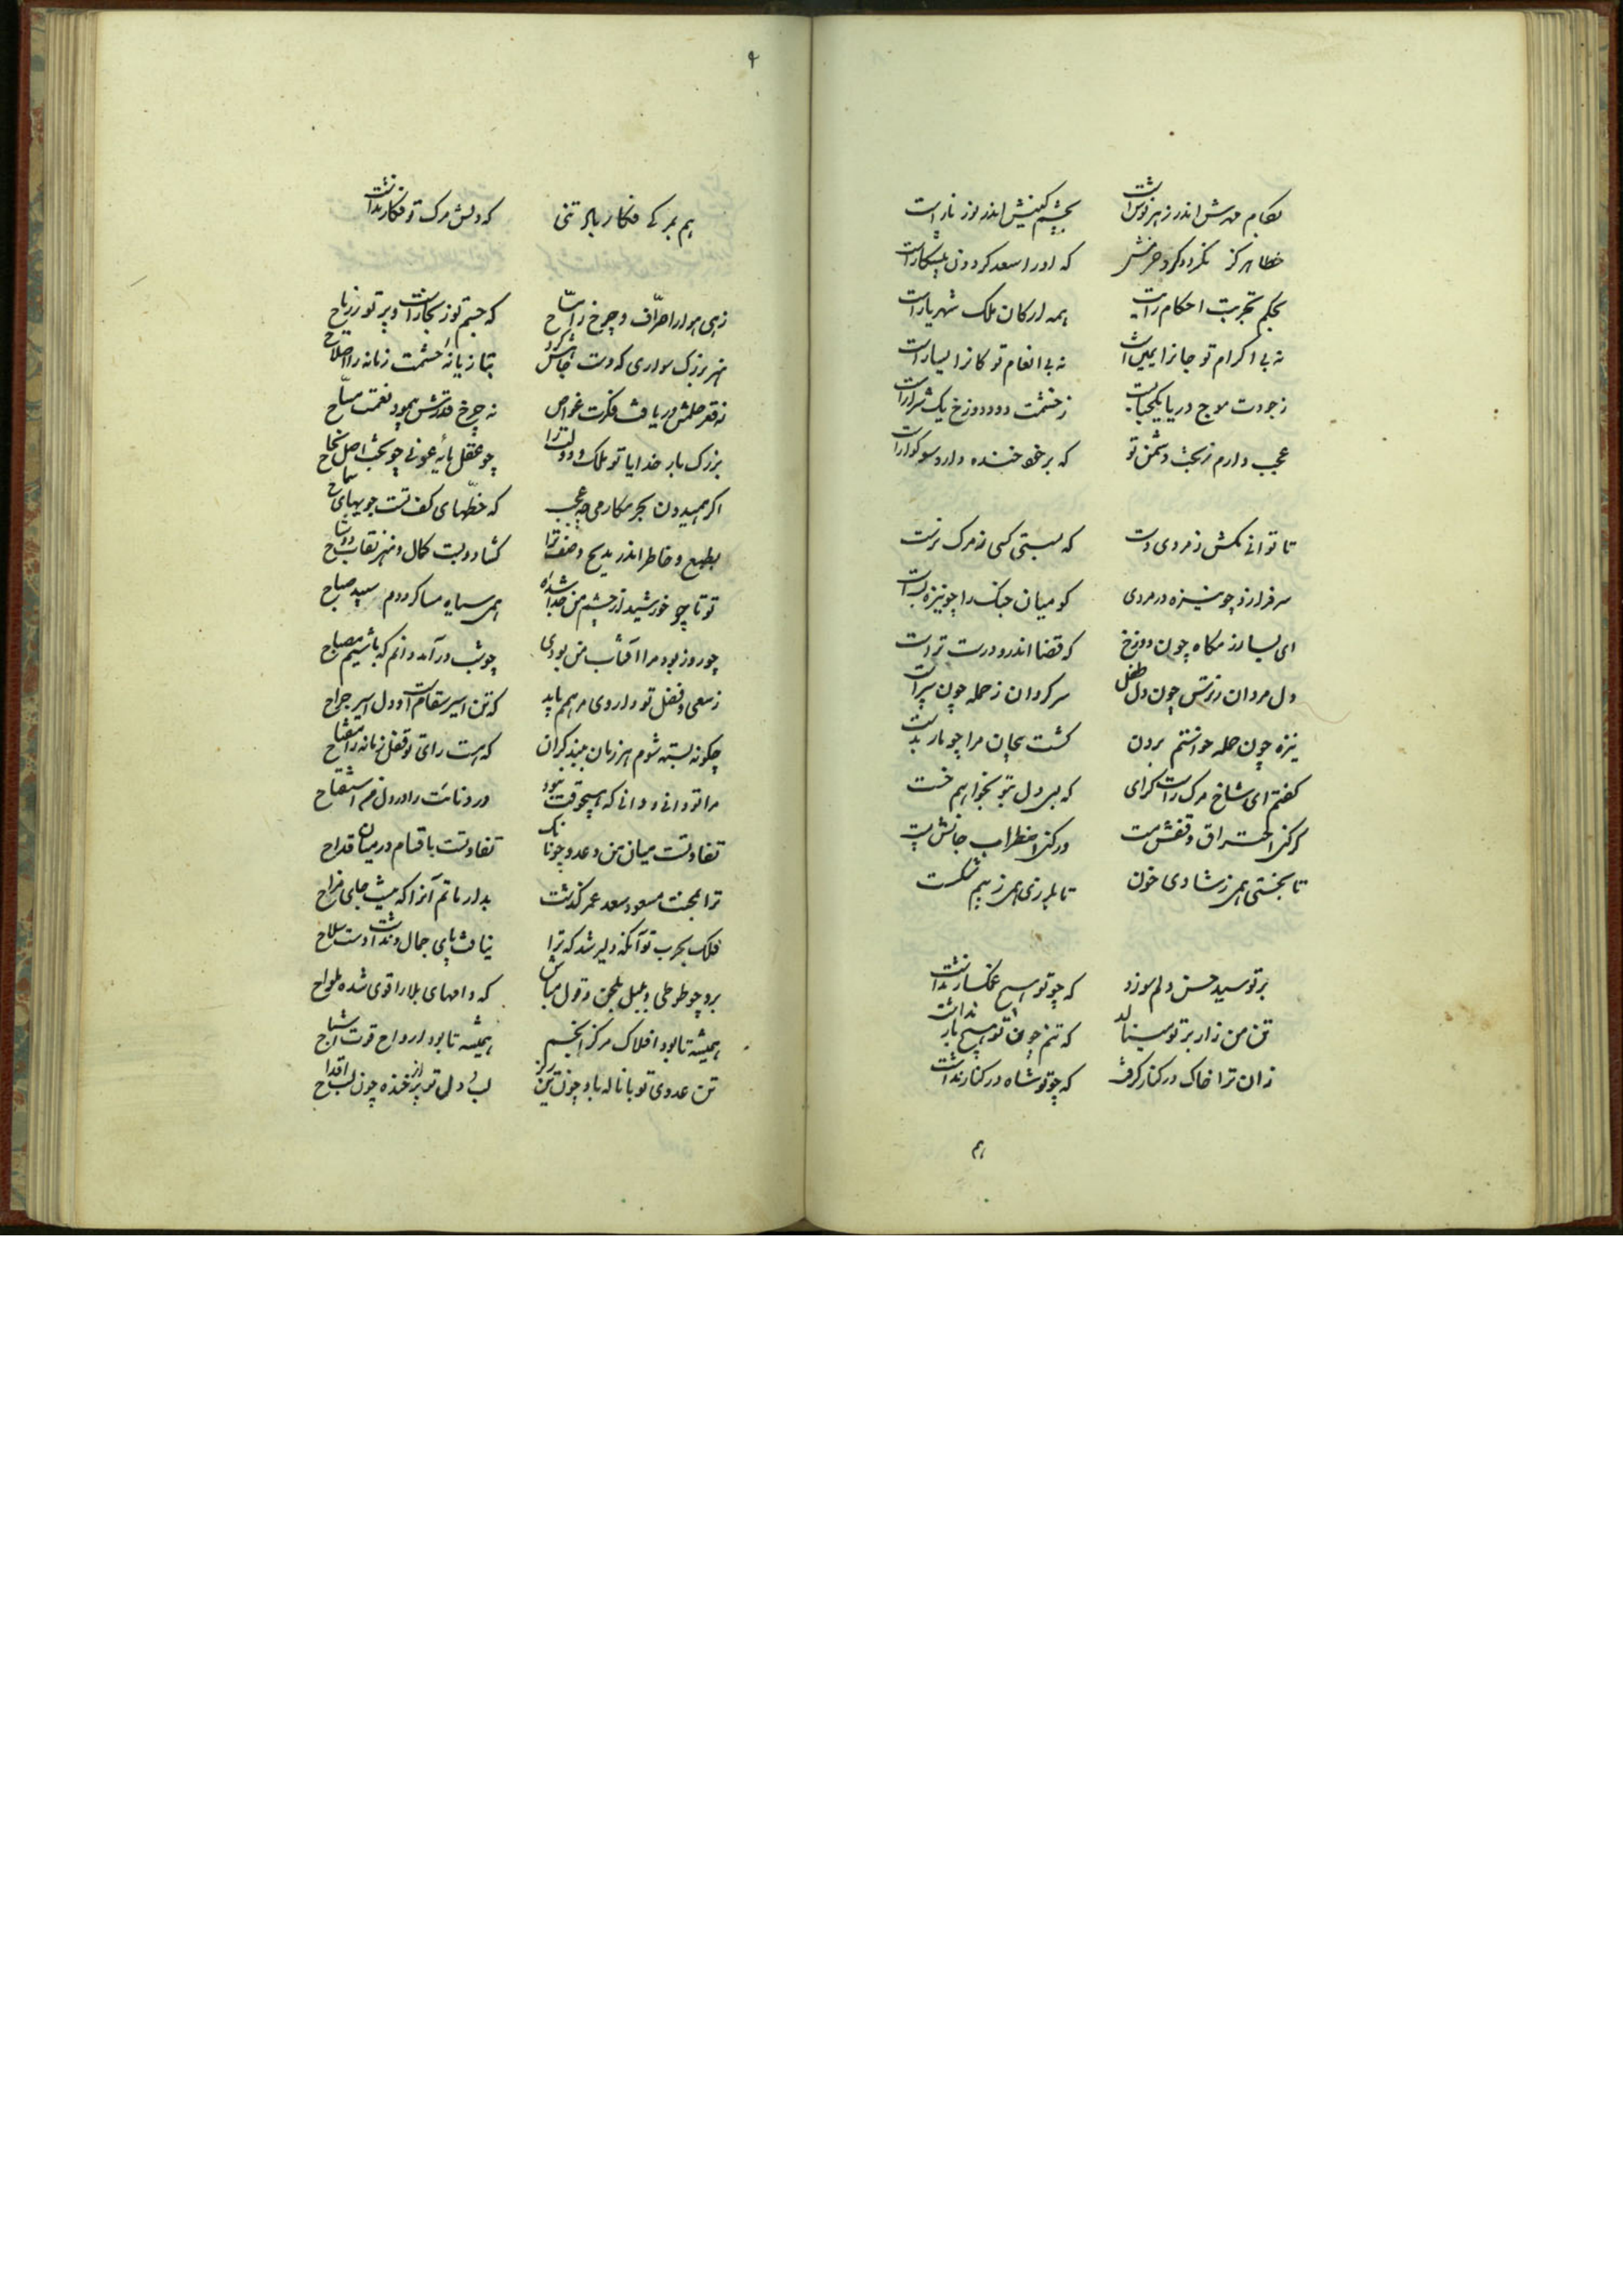 بکام مهرش اندر زهر نوش است
بچشم کینش اندر نور نار است
خطا هرگز نگردد گرد حزمش
که او را سعد گردون پیشکار است
بحکم تجربت احکام رایت
همه ارکان ملک شهریار است
نه بی اکرام تو جانرا یمین است
نه بی انعام تو کانرا یسار است
ز جودت موج دریا یک حبابست
ز خشمت دود دوزخ یک شرار است
عجب دارم ز بخت دشمن تو
که بر خود خنده دارد سوکوار است
تا توانی مکش ز مردی دست
که بسستی کسی ز مرک نرست
سر فرازد چو نیزه در مردی
کو میان جنک را چو نیزه ببست
ای بسا رزمگاه چون دوزخ
که قضا اندرو درست نرست
دل مردان ز ترس چون دل طفل
سر گردان ز حمله چون سر مست
نیزه چون حمله خواستم بردن
گشت پیچان مرا چو مار بدست
گفتم ای شاخ مرک راست گرای
که بسی دل بتو بخواهم خست
گر کنی احتراق وقتش هست
ور کنی اضطراب جانش هست
تا بخستی همی ز شادی خون
تا بلرزی همی ز بیم شکست
بر تو سید حسن دلم سوزد
که چو تو هیچ غمگسار نداشت
تن من زار بر تو مینالد
که تنم چون تو هیچ یار نداشت
زان ترا خاک در کنار گرفت
که چو تو شاه در کنار نداشت
هم
۹
هم بمرگی فگار باد تنی
که دلش مرک تو فکار نداشت
زهی هوا را طواف و چرخ را مساح
که جسم تو ز بخار است و پر تو ز ریاح
نه قعر حلمش دریافت فکرت غواص
نه چرخ قدرتش پیمود نعمت مساح
بزرک بار خدایا تو ملک و دولت را
چو عقل مایه عونی چو بخت اصل نجاح
اگر همیدون بحر مکارمی چه عجب
که خطهای کف تست جویهای سماح
بطبع و خاطر اندر مدیح وصف ترا
تو تا چو خورشید از چشم من جدا شده
همی سیاه مسا گرددم سپید صباح
چو روز بود مرا آفتاب من بودی
چو شب درآمد دانم که باشیم مصباح
ز سعی و فضل تو داروی مرهم باید
که تن اسیر سقام است و دل اسیر جراح
چکونه بسته شوم هر زمان ببند گران
که هست رای تو قفل زمانه را مفتاح
تفاوتست میان من و عدو چونانک
تفاوتست باقسام در میان قداح
ترا بمحنت مسعود سعد عمر گذشت
بدار ماتم آنرا که نیست جای مزاح
فلک بحرب تو آنگه دلیر شد که ترا
نیافت پای جمال و نداشت دست سلاح
برو چو طوطی و بلبل بلحن و قول مباش
که دامهای بلا را قوی شده ملواح
همیشه تا بود افلاک مرکز انجم
همیشه تا بود ارواح قوت اشباح
تن عدوی تو با ناله باد چون تن زیر
لب ولی تو پر از خنده چون لب اقداح